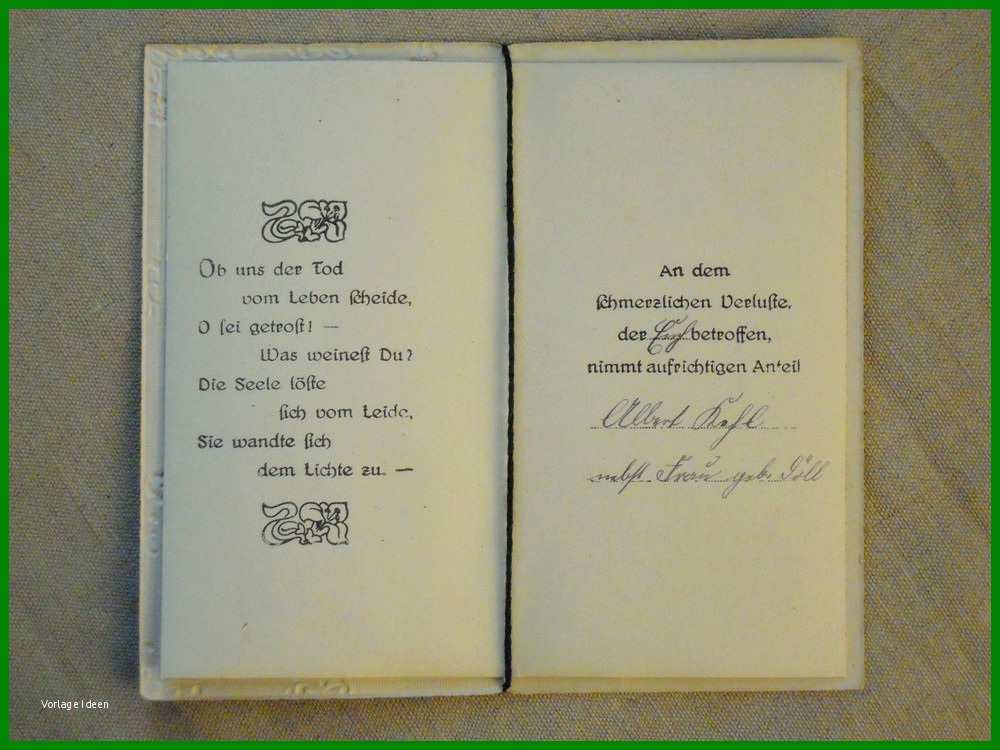 Ob uns der Tod
vom Leben scheide,
O sei getrost! —
Was weinest Du?
Die Seele löste
sich vom Leide,
Sie wandte sich
dem Lichte zu. —
An dem
schmerzlichen Verluste,
der Euch betroffen,
nimmt aufrichtigen Anteil
Albert Kehl
nebst Frau geb. Göll
Vorlage Ideen